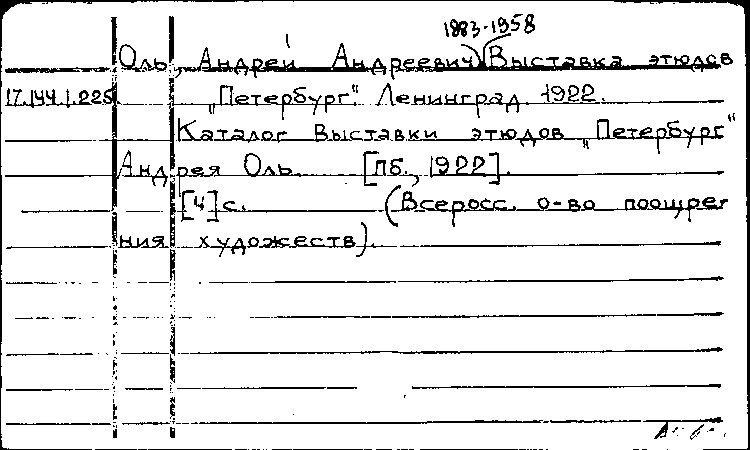 1883-1958
Оль, Андрей Андреевич) (Выставка этюдов
17.144.1.225 „Петербург". Ленинград. 1922.
Каталог Выставки этюдов „Петербург"
Андрея Оль. [Пб., 1922].
[4] с. (Всеросс. о-во поощре
ния художеств).